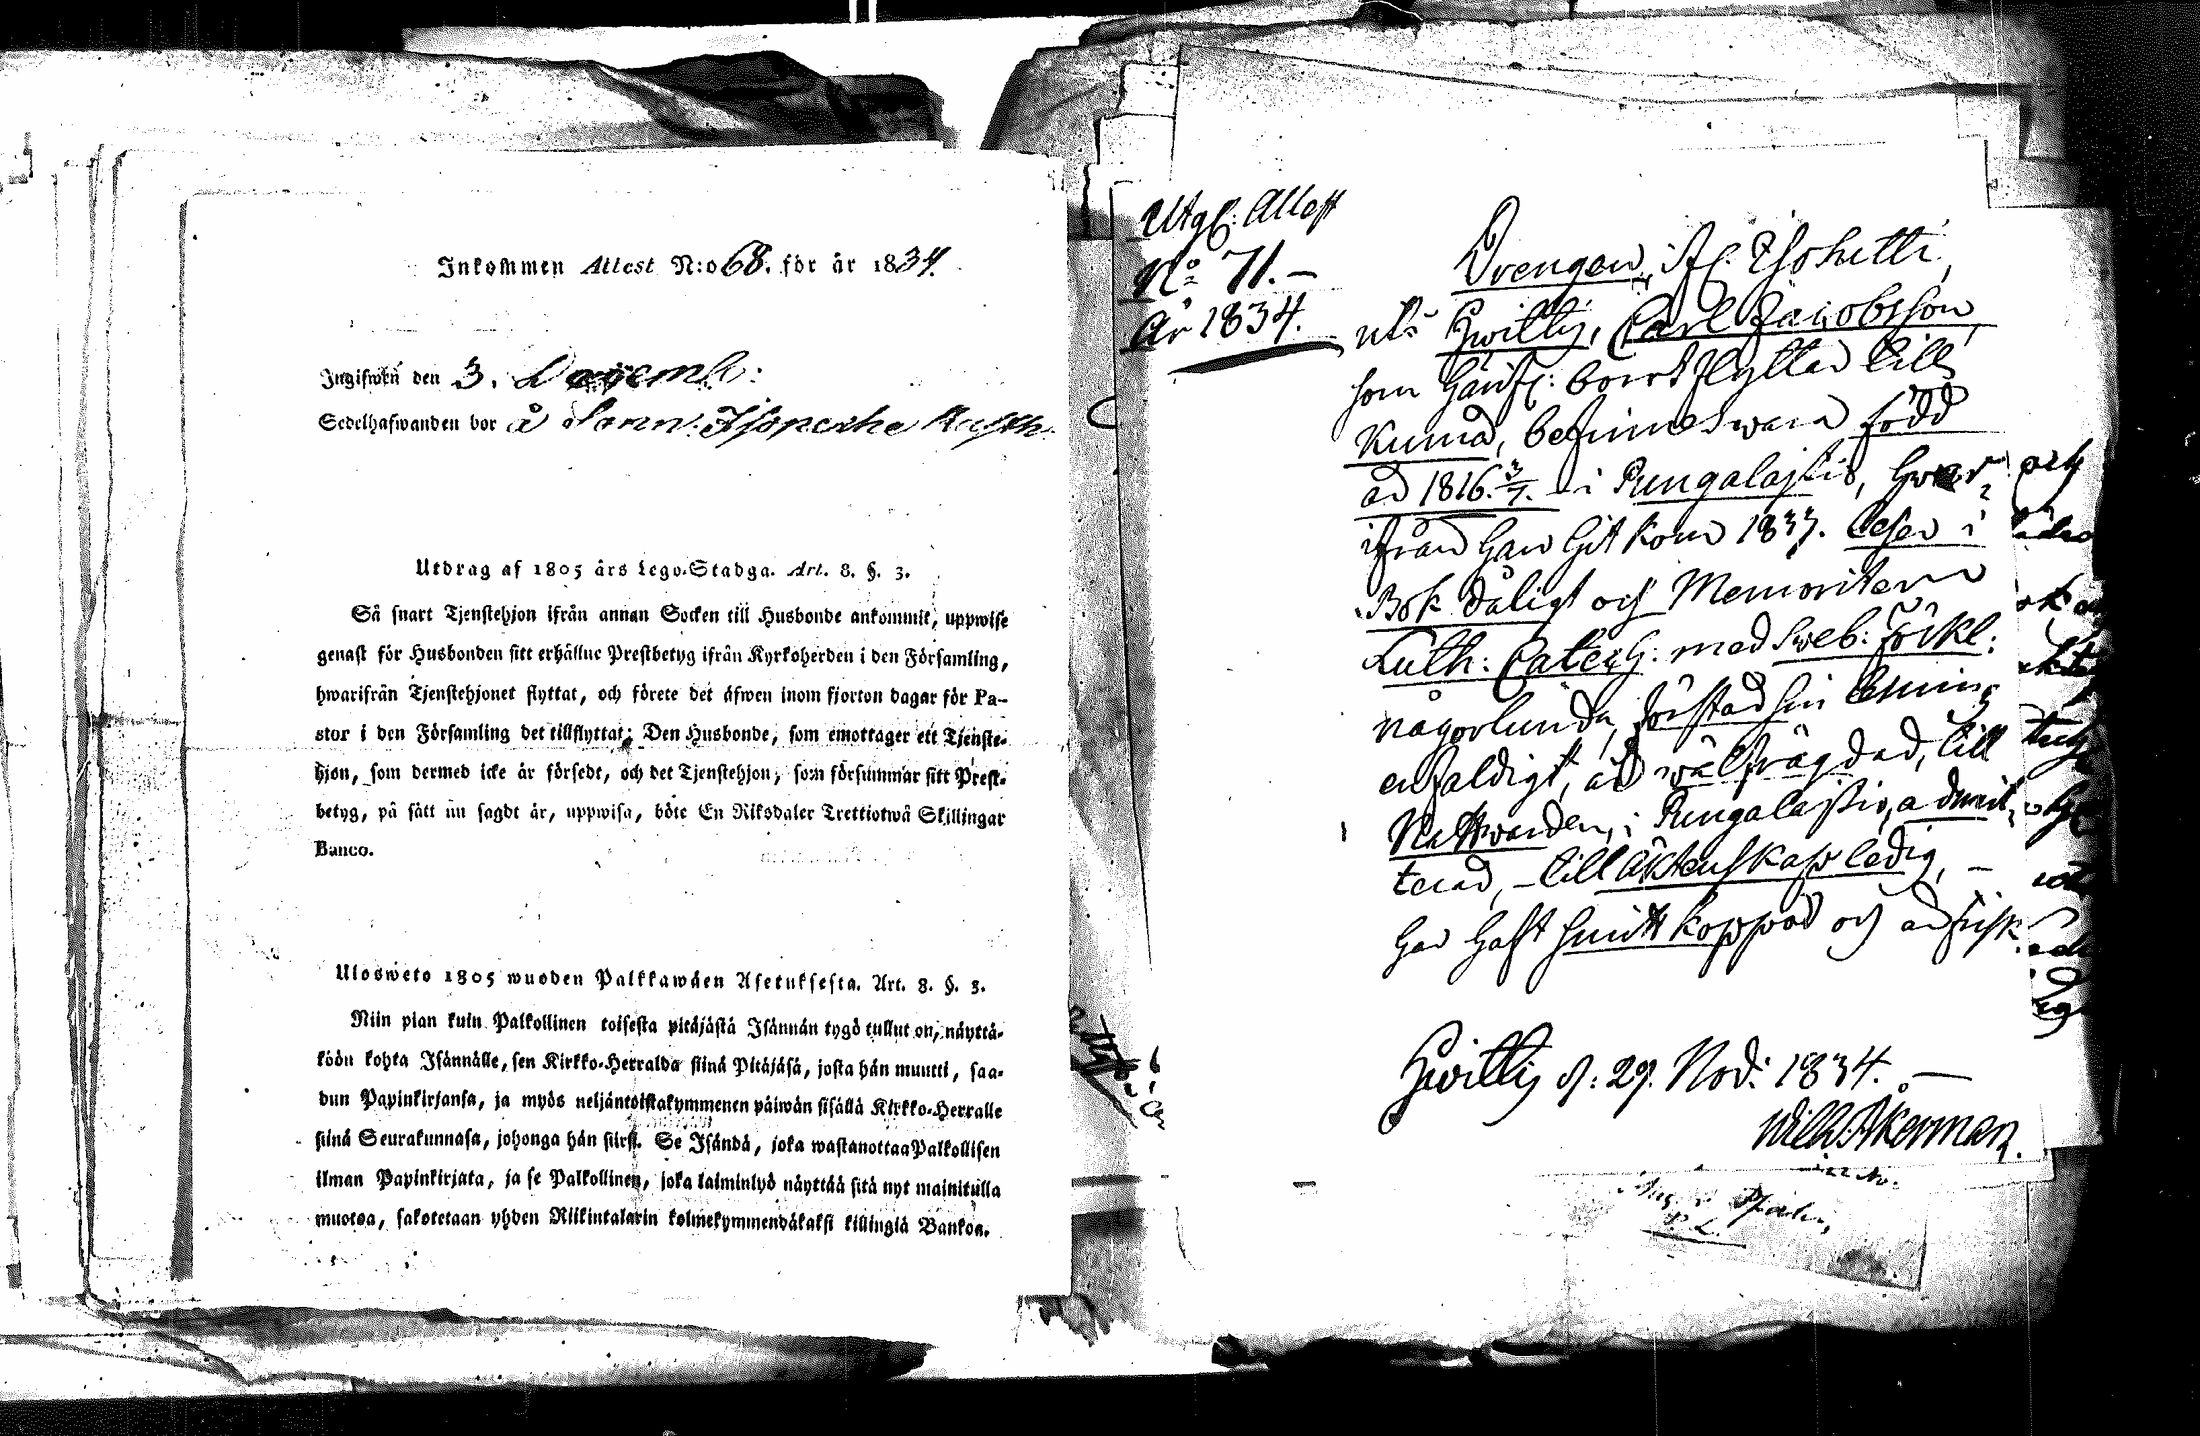 Inkommen Attest N:o 68. för år 1834.
Ingifwen den 3. Decemb:
Sedelhafwanden bor å
Utdrag af 1805 års Lego-Stadga. Art. 8. §. 3.
Så snart Tjenstehjon ifrån annan Socken till Husbonde ankommit, uppwise
genast för Husbonden sitt erhållne Prestbetyg ifrån Kyrkoherden i den Församling,
hwarifrån Tjenstehjonet flyttat, och förete det äfwen inom fjorton dagar för Pa-
stor i den Församling det tillflyttat; Den Husbonde, som emottager ett Tjenste-
hjon, som dermed icke är försedt, och det Tjenstehjon, som försummar sitt Prest-
betyg, på sätt nu sagdt är, uppwisa, böte En Riksdaler Trettiotwå Skillingar
Banco.
Ulosweto 1805 wuoden Palkkawäen Asetuksesta. Art. 8. §. 3.
Niin pian kuin Palkollinen toisesta pitäjästä Isännän tygö tullut on, näyttä-
köön kohta Isännälle, sen Kirkko-Herralda siinä Pitäjäsä, josta hän muutti, saa-
dun Papinkirjansa, ja myös neljäntoistakymmenen päiwän sisällä Kirkko-Herralle
siinä Seurakunnasa, johonga hän siirst. Se Isändä, joka wastanottaa Palkollisen
ilman Papinkirjata, ja se Palkollinen, joka laiminlyö näyttää sitä nyt mainitulla
muotoa, sakotetaan yhden Riikintalarin kolmekymmendäkaksi killingiä Bankoa.
Utgf: Attest
No 71. –
År 1834.
Drengen,
Carl Jacobsson
som härifr: bortflyttar till
Kumo, befinnes wara född
år 1816. 3/7. i Pungalajtio, hwar-
ifrån han hit kom 1833. Läser i
Bok dåligt och Memoriter
Luth: Catech: med Sweb: Förkl:
någorlunda, förstår sin
enfaldigt, är wälfrägdad, till
Nattwarden, i Pungalajtio, admit-
terad, – till äktenskap ledig, –
har haft Smittkoppor och är frisk.
Hwittis d: 29. Nov: 1834. –
Willh Åkerman.